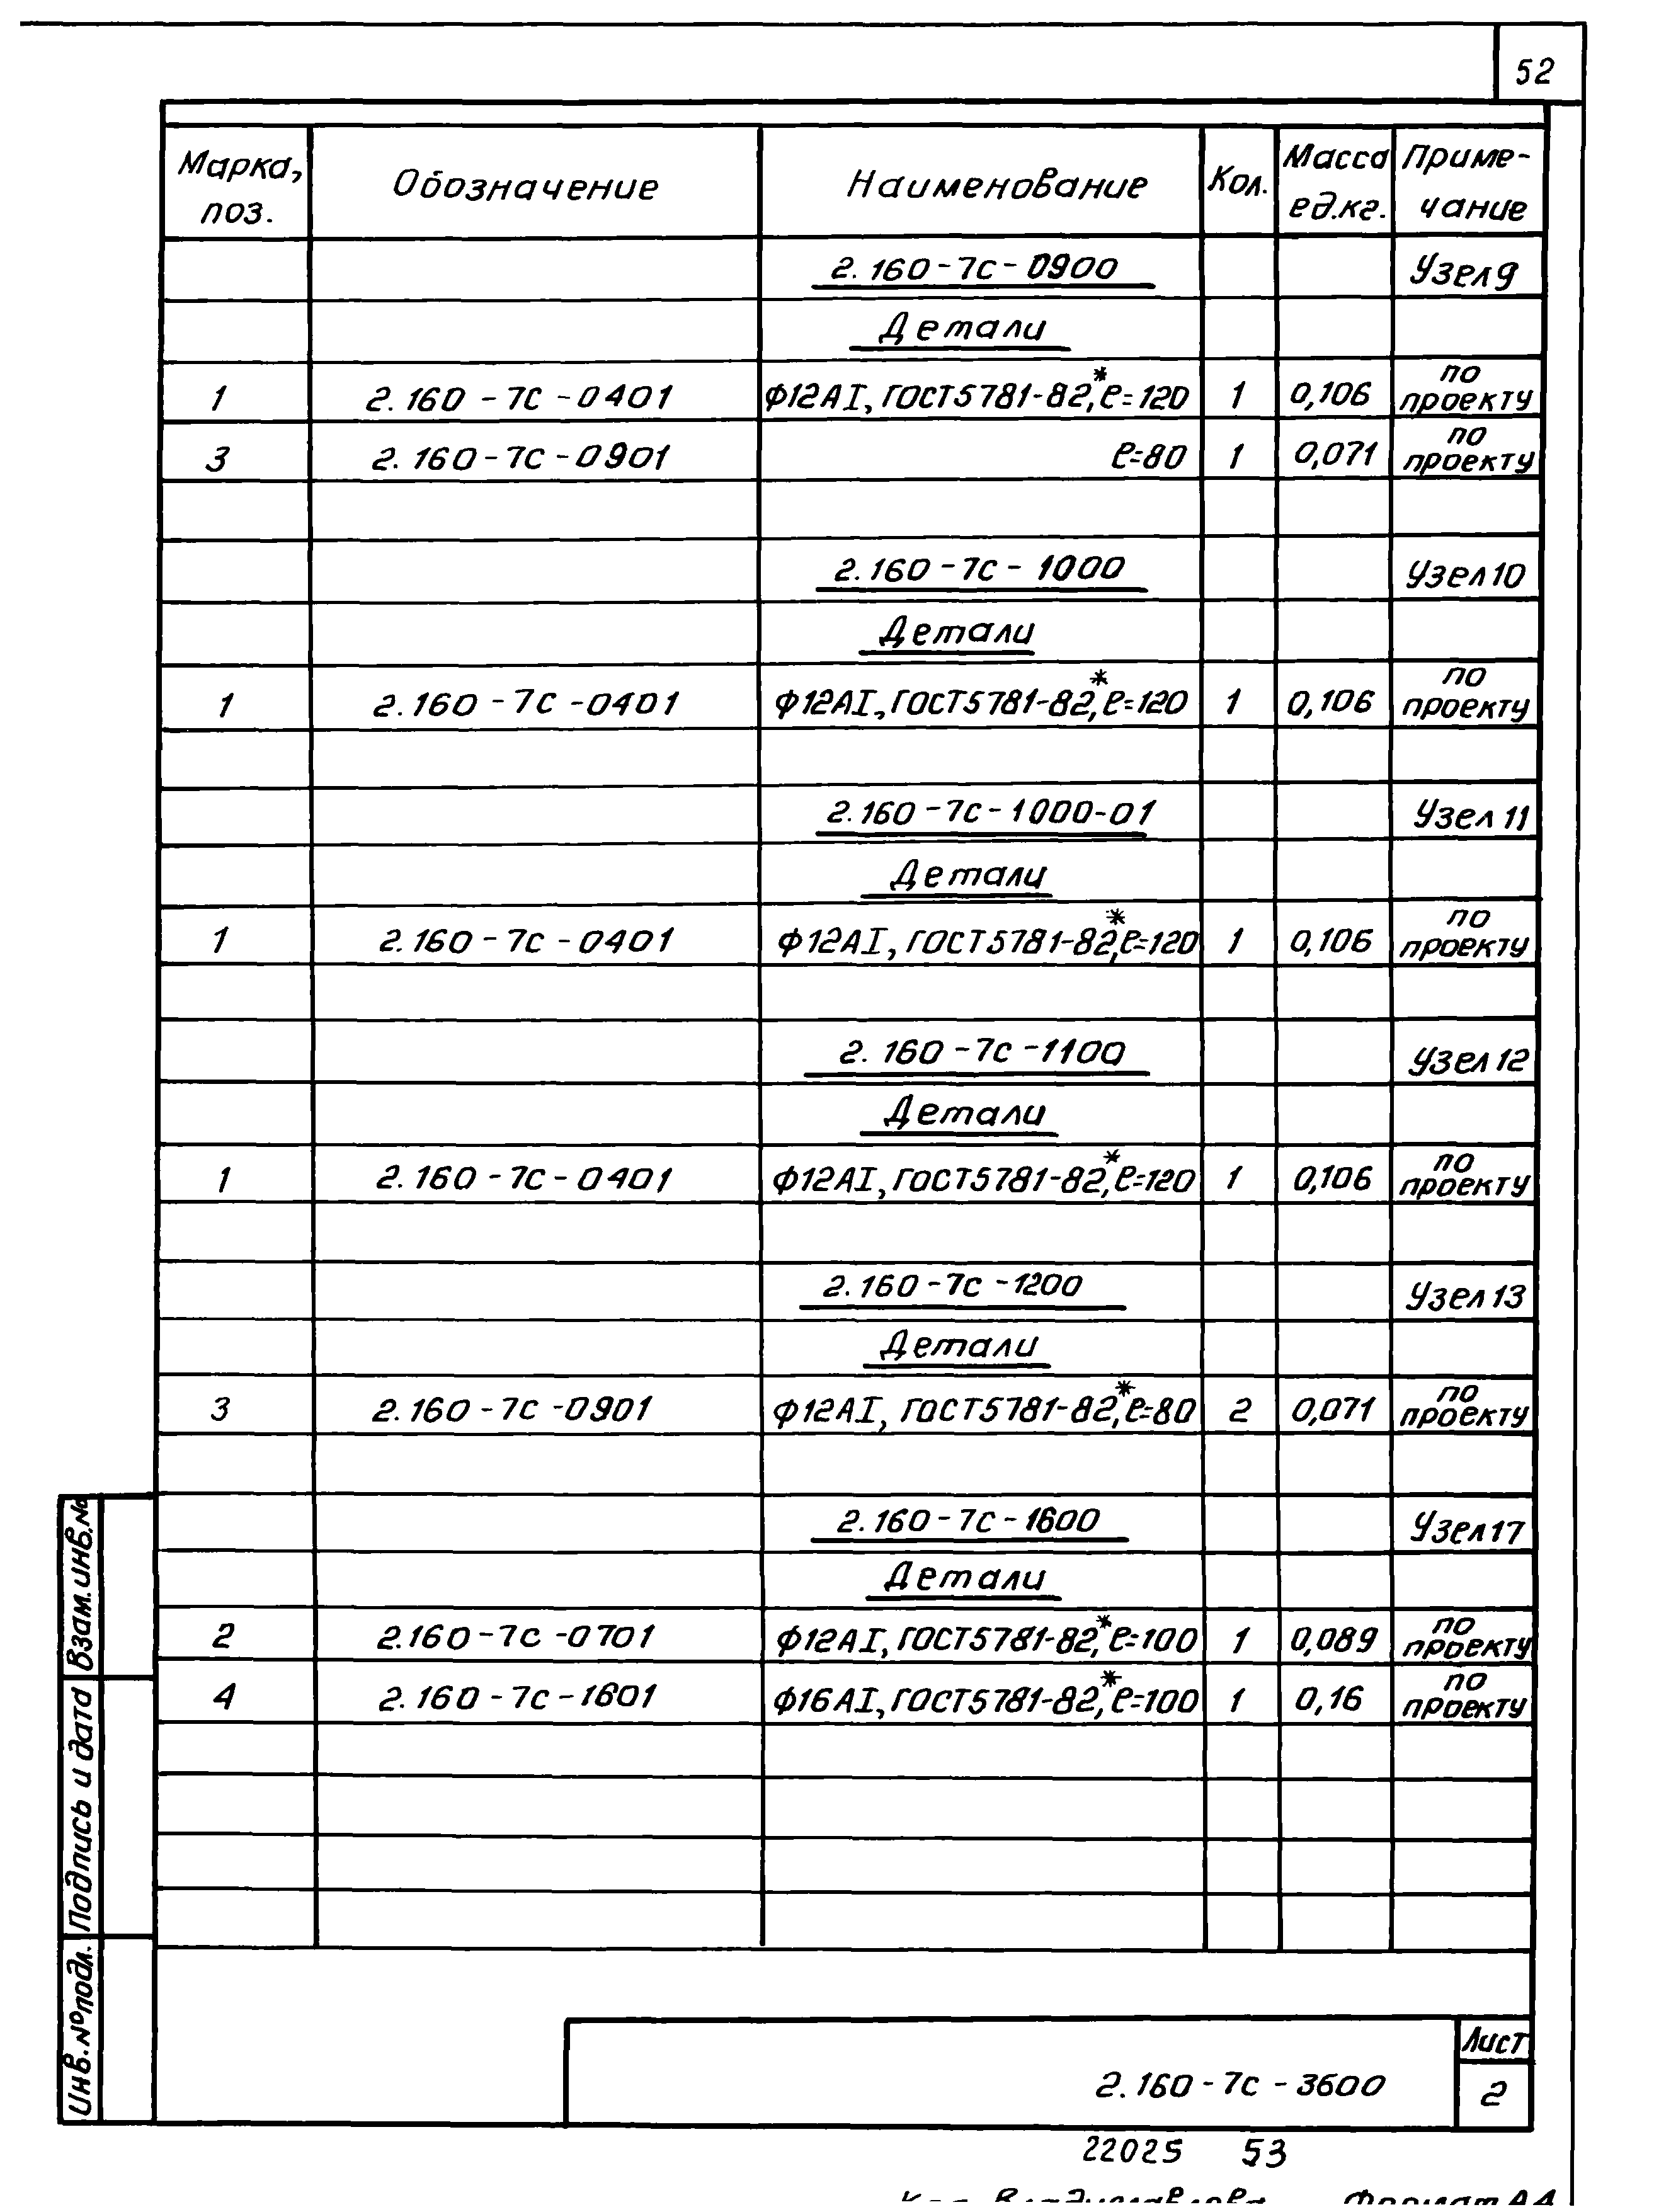 52
Марка, поз. Обозначение Наименование Кол. Масса ед.кг. Приме-чание
2.160-7с-0900 Узел 9
Детали
1 2.160-7с-0401 Ф12АI, ГОСТ5781-82*, ℓ=120 1 0,106 по проекту
3 2.160-7с-0901 ℓ=80 1 0,071 по проекту
2.160-7с-1000 Узел 10
Детали
1 2.160-7с-0401 Ф12АI, ГОСТ5781-82*, ℓ=120 1 0,106 по проекту
2.160-7с-1000-01 Узел 11
Детали
1 2.160-7с-0401 Ф12АI, ГОСТ5781-82*, ℓ=120 1 0,106 по проекту
2.160-7с-1100 Узел 12
Детали
1 2.160-7с-0401 Ф12АI, ГОСТ5781-82*, ℓ=120 1 0,106 по проекту
2.160-7с-1200 Узел 13
Детали
3 2.160-7с-0901 Ф12АI, ГОСТ5781-82*, ℓ=80 2 0,071 по проекту
2.160-7с-1600 Узел 17
Детали
2 2.160-7с-0701 Ф12АI, ГОСТ5781-82*, ℓ=100 1 0,089 по проекту
4 2.160-7с-1601 Ф16АI, ГОСТ5781-82*, ℓ=100 1 0,16 по проекту
Взам.инв.№
Подпись и дата
Инв.№подл.
2.160-7с-3600
Лист
2
22025 53
Формат А4